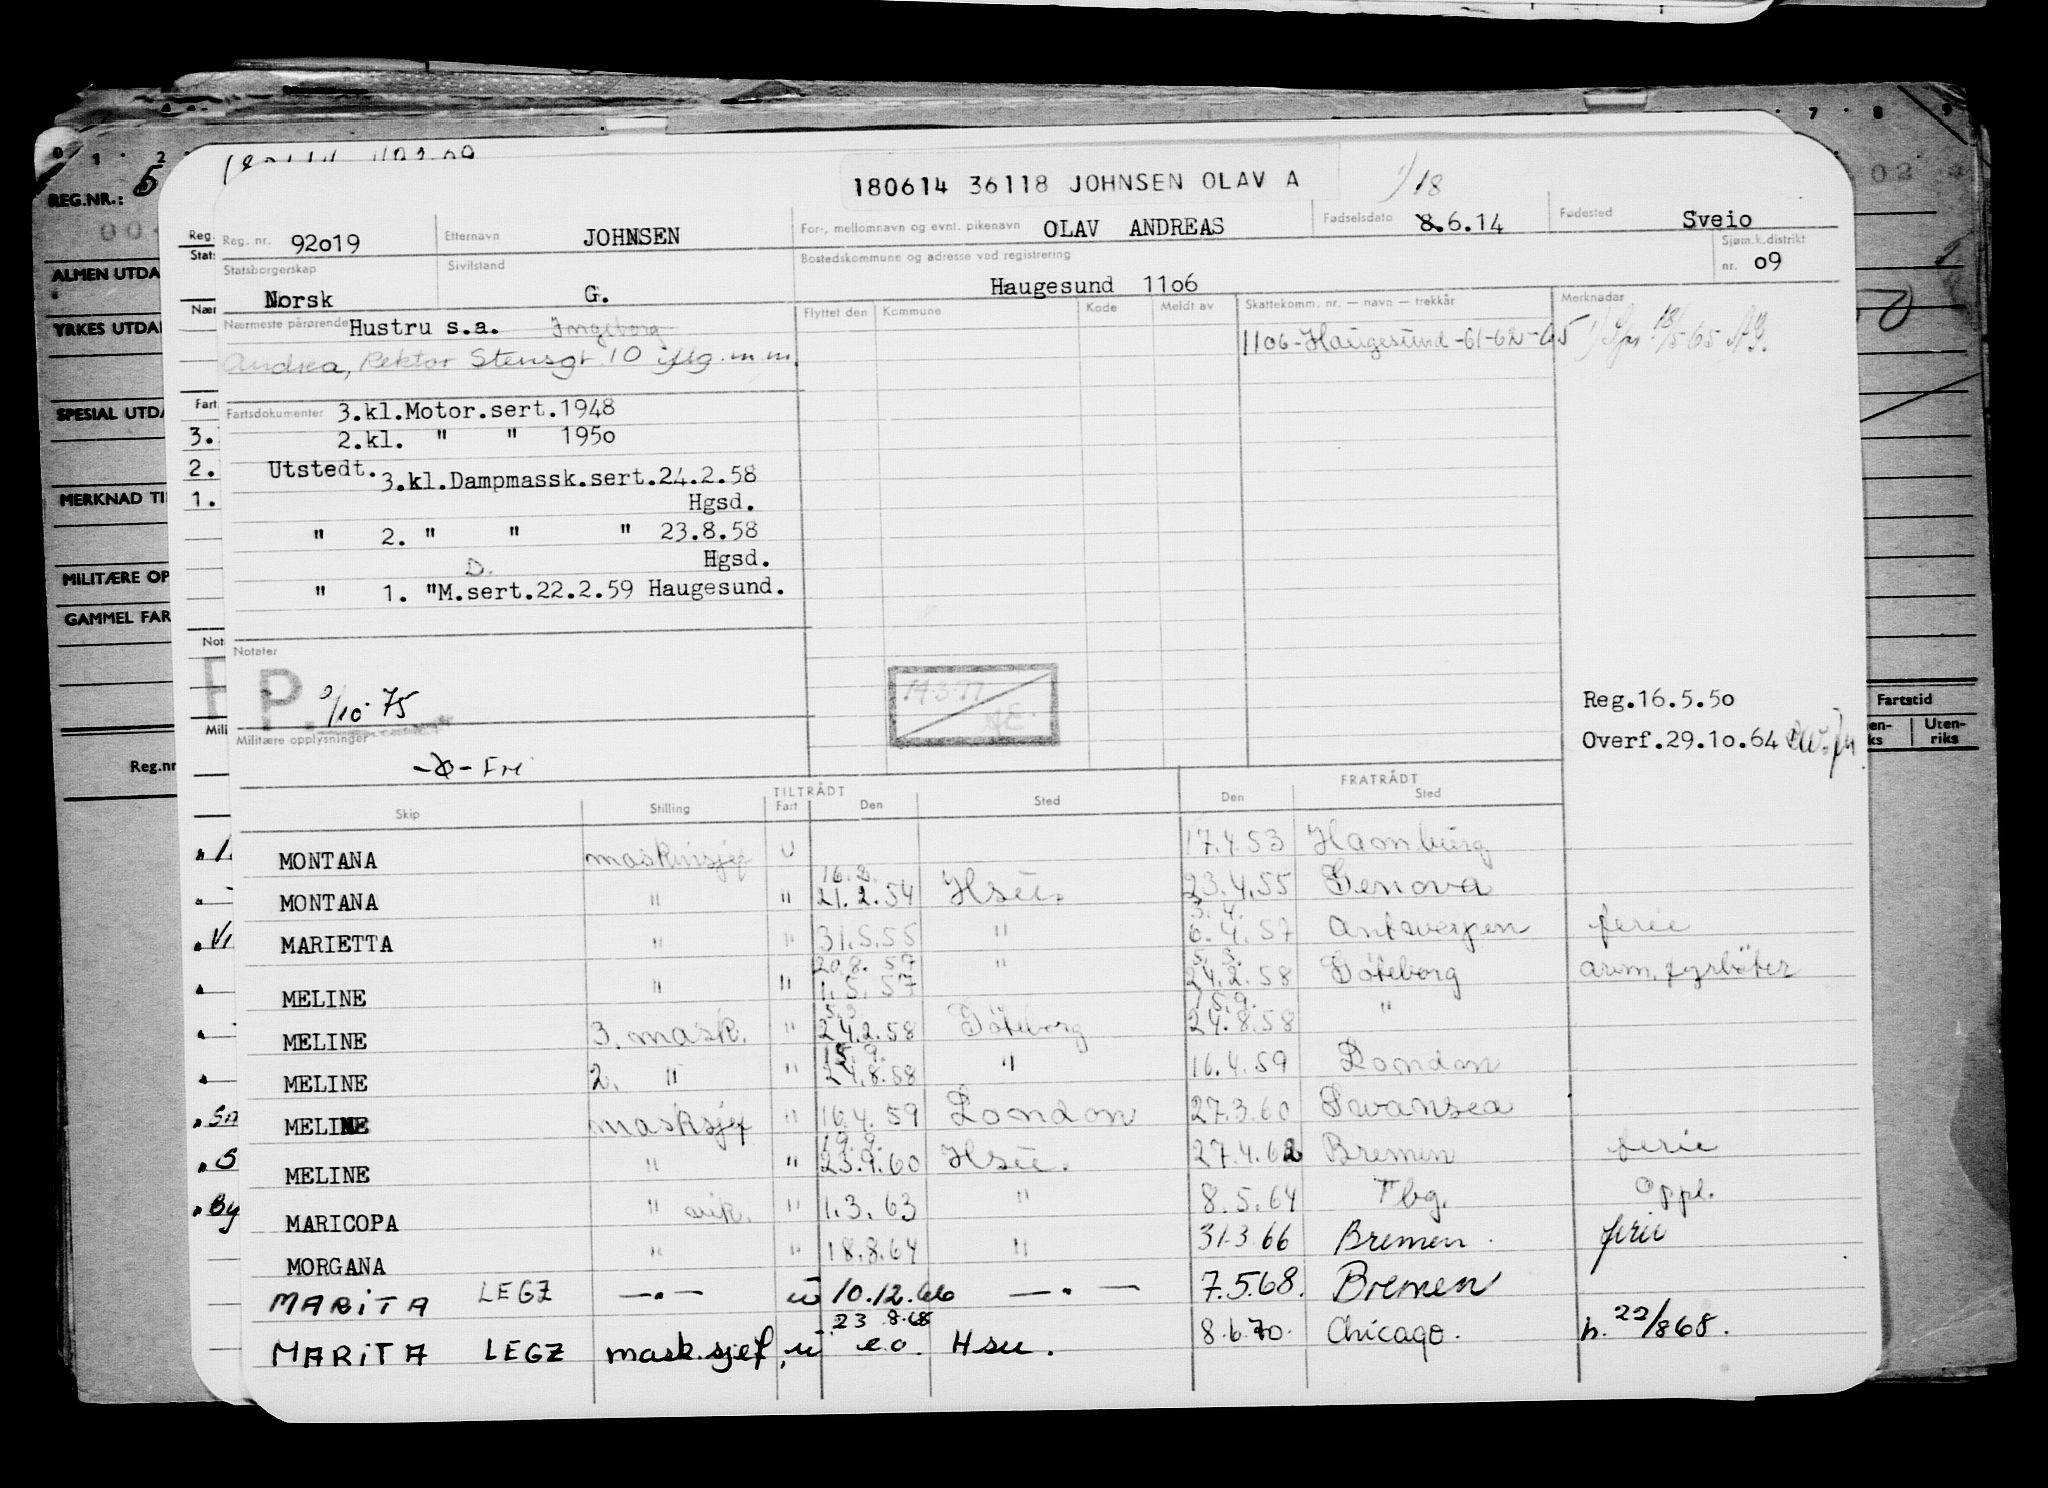 180614 36118 JOHNSEN OLAV A
1) 18
REG.NR.: 5
Reg. nr. 92019
Etternavn JOHNSEN
For-, mellomnavn og evnt. pikenavn OLAV ANDREAS
Fødselsdato 8.6.14
Fødested Sveio
Statsborgerskap Norsk
Sivilstand G.
Bostedskommune og adresse ved registrering Haugesund 1106
Sjøm.k.distrikt nr. 09
ALMEN UTDA
YRKES UTDA
SPESIAL UTDA
MERKNAD TI
MILITÆRE OP
GAMMEL FAR
Reg.nr
Nærmeste pårørende Hustru s.a. Ingeborg
Andrea, Rektor Stensgt. 10 iflg. m.m.
Flyttet den Kommune Kode Meldt av Skattekomm. nr. — navn — trekkår Merknader
1106-Haugesund-61-62-65
Fartsdokumenter 3.kl.Motor.sert.1948
2.kl. " " 1950
Utstedt. 3.kl.Dampmassk.sert.24.2.58
Hgsd.
" 2. " " " 23.8.58
D. Hgsd.
" 1. "M.sert.22.2.59 Haugesund.
Notater
P. 9/10-75
14.3.77
AE.
Reg.16.5.50
Overf.29.10.64
Militære opplysninger
Fri
Fartstid
Uten-
riks
TILTRÅDT FRATRÅDT
Skip Stilling Fart Den Sted Den Sted
MONTANA maskinsjef U 17.4.53 Hamburg
16.2.
MONTANA " " 21.2.54 Hsu. 23.4.55 Genova
3.4.
MARIETTA " " 31.5.55 " 6.4.57 Antwerpen ferie
20.8.57 5.3.
MELINE " " 1.5.57 " 24.2.58 Göteborg avm. fyrbøter
5.3. 15.9.
MELINE 3. mask. " 24.2.58 Göteborg 24.8.58 "
15.9.
MELINE 2. " " 24.8.58 " 16.4.59 London
MELINE masksjef " 16.4.59 London 27.3.60 Swansea
19.9.
MELINE " " 23.9.60 Hsu. 27.4.62 Bremen ferie
MARICOPA " vik. " 1.3.63 " 8.5.64 Tbg. Oppl.
MORGANA " " 18.8.64 " 31.3.66 Bremen. ferie
MARITA LEGZ —.— u 10.12.66 —.— 7.5.68. Bremen
23 8.68
MARITA LEGZ mask.sjef, u e.o. Hsu. 8.6.70. Chicago. h. 22/8 68.